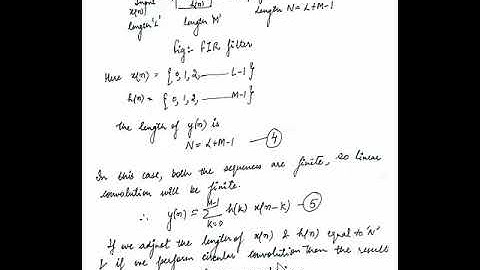 Input
x(n)
h(n)
length 'L'
length 'M'
length N=L+M-1
Fig:- FIR filter
Here x(n) = {0,1,2, —— L-1}
h(n) = {0,1,2, —— M-1}
The length of y(n) is
N = L+M-1 — ④
In this case, both the sequences are finite, so linear
convolution will be finite.
∴ y(n) = M-1 Σ k=0 h(k) x(n-k) — ⑤
If we adjust the length of x(n) & h(n) equal to 'N'
& if we perform circular convolution then the result